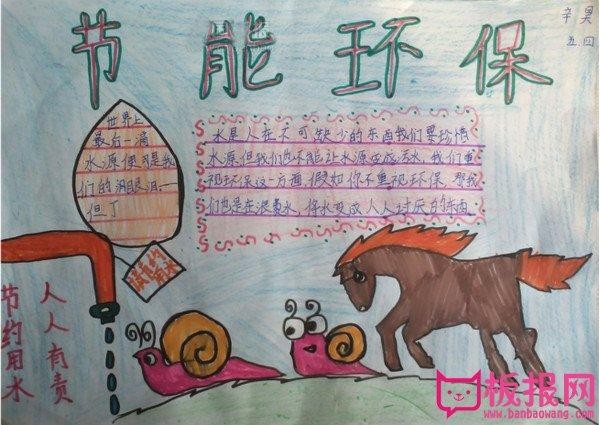 节能环保
辛昊
五四
世界上
最后一滴
水源便可是我
们的眼泪
但了
水是人在不可缺少的东西我们要珍惜
水源但我们也不能让水源变成污水,我们重
视环保这一方面,假如你不重视环保,那我
们也是在浪费水,将水变成人人讨厌的东西
请节约
用水
人人有责
节约用水
板报网
www.banbaowang.com